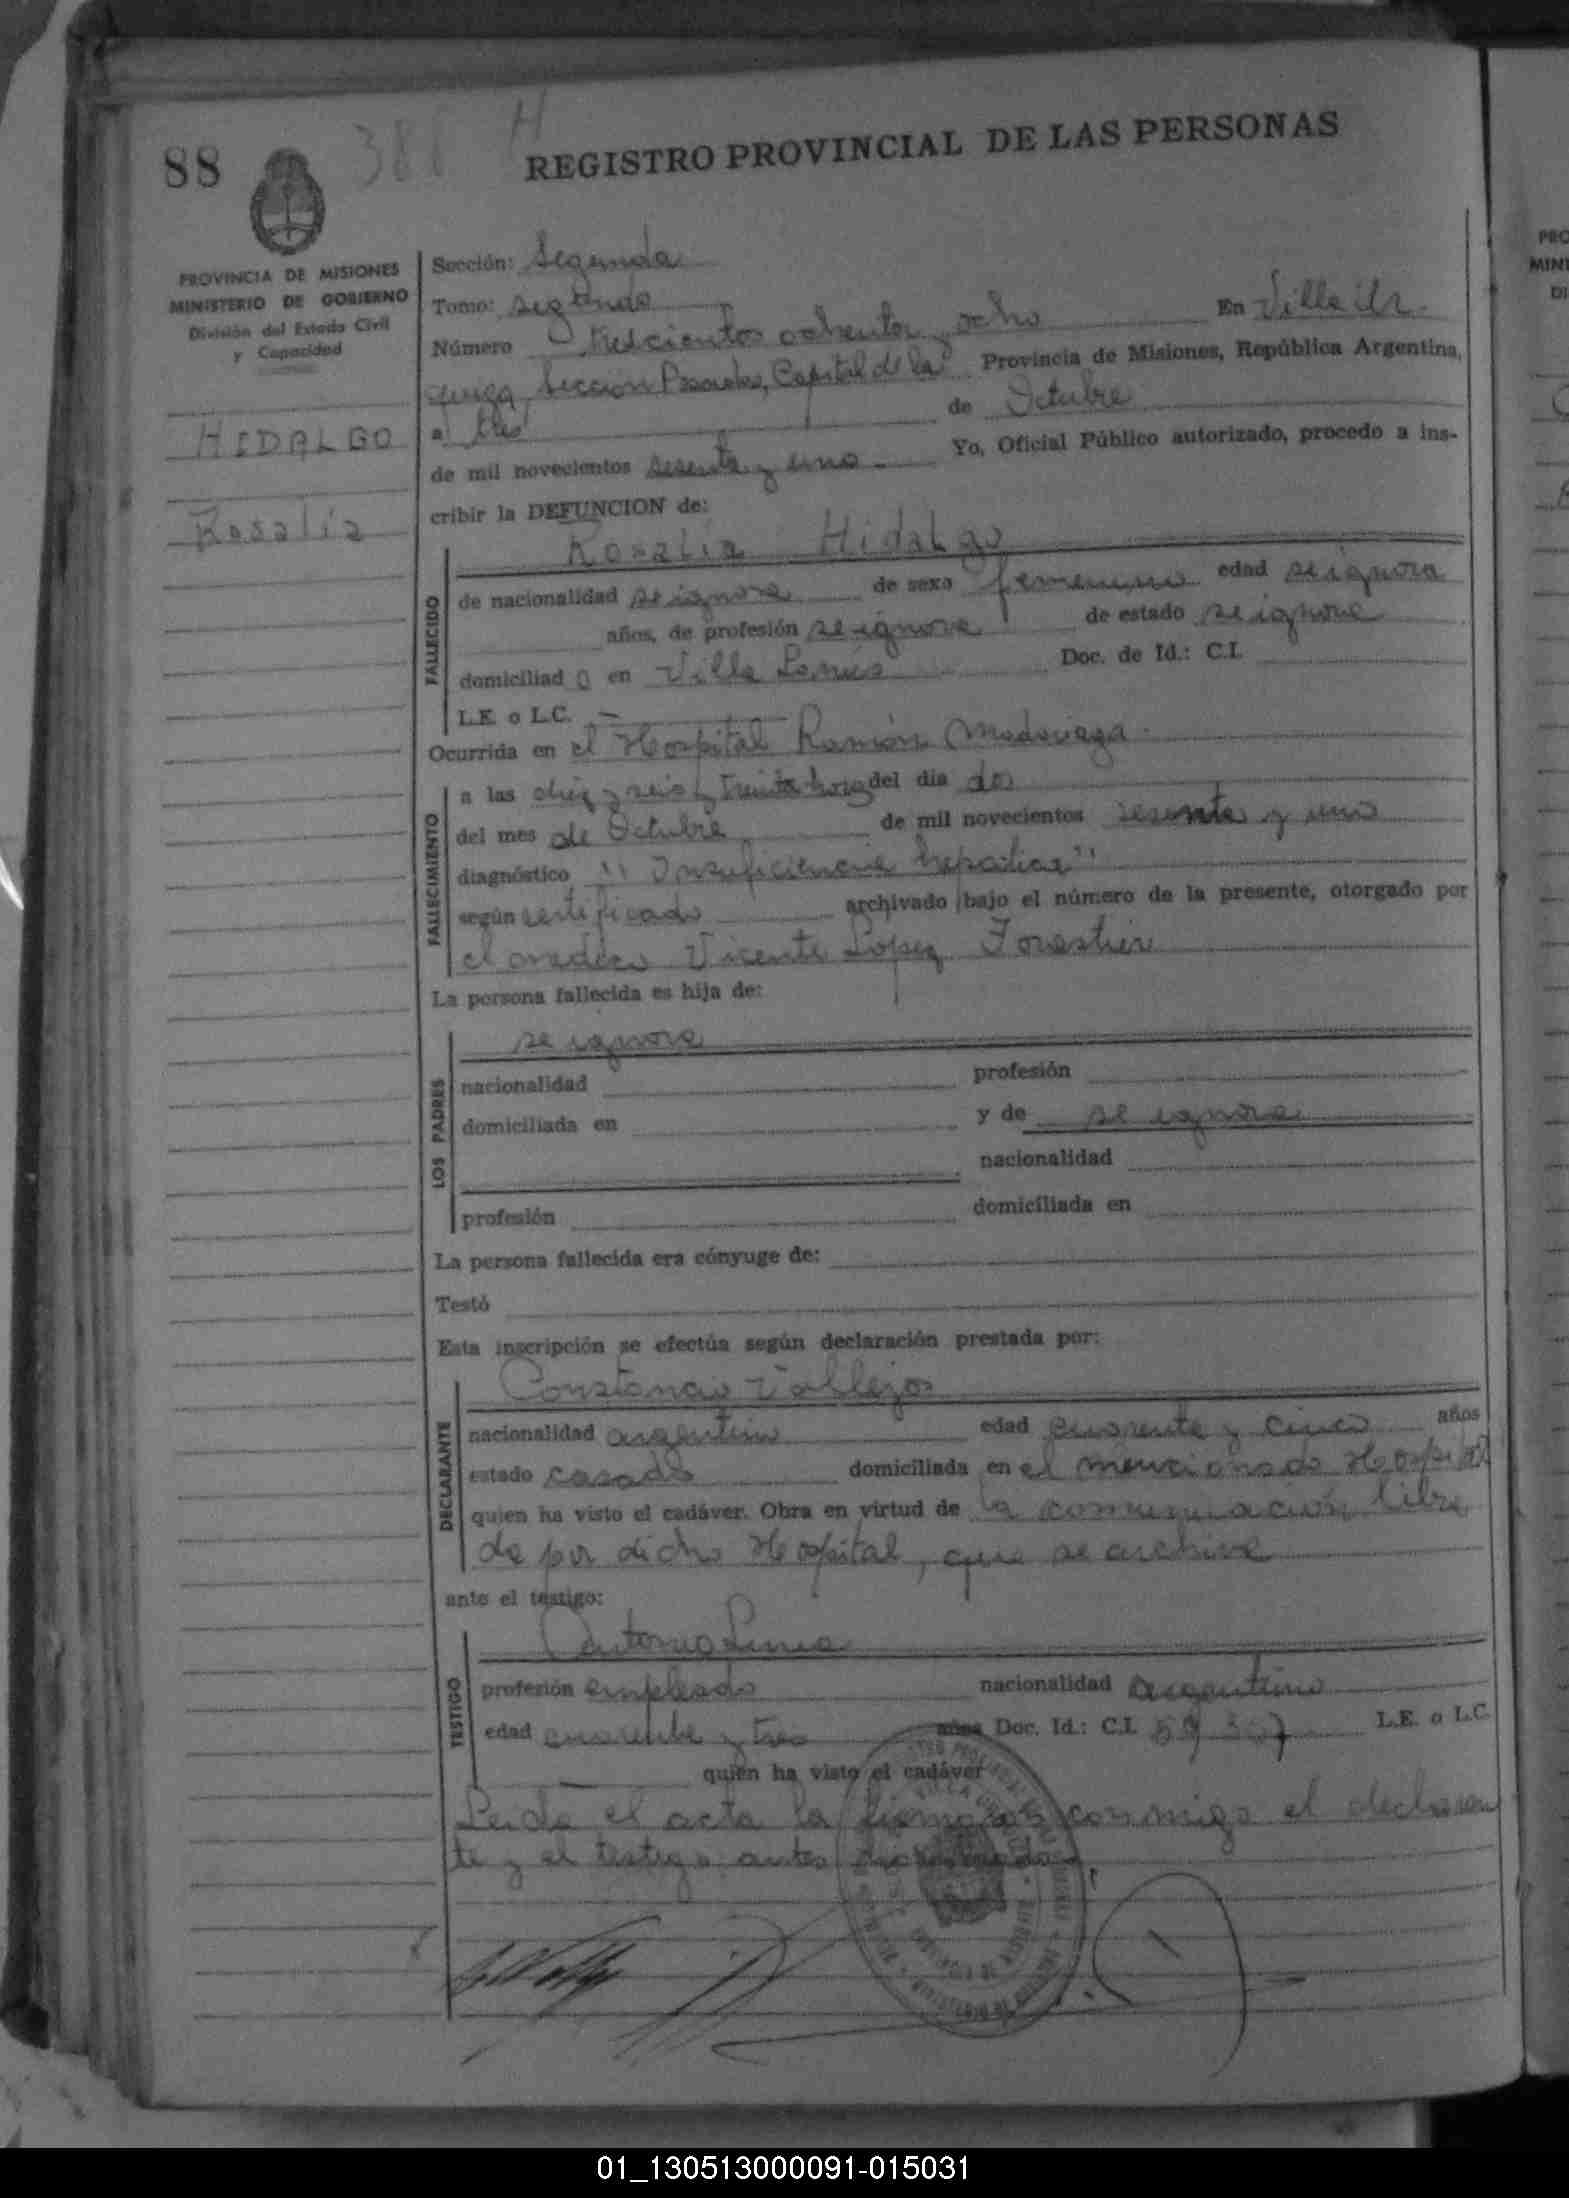 88
388 H
REGISTRO PROVINCIAL DE LAS PERSONAS
PROVINCIA DE MISIONES
MINISTERIO DE GOBIERNO
División del Estado Civil
y Capacidad
HIDALGO
Rosalía
Sección: Segunda
Tomo: segundo
Número trescientos ochenta y ocho En Villa Ur-
quiza, Sección Posadas, Capital de la Provincia de Misiones, República Argentina,
a tres de Octubre
de mil novecientos sesenta y uno Yo, Oficial Público autorizado, procedo a ins-
cribir la DEFUNCION de:
Rosalía Hidalgo
FALLECIDO
de nacionalidad se ignora de sexo femenino edad se ignora
años, de profesión se ignora de estado se ignora
domiciliad o en Villa Lanús Doc. de Id.: C.I.
L.E. o L.C. —
Ocurrida en el Hospital Ramón Madariaga.
FALLECIMIENTO
a las diez y seis y treinta horas del día dos
del mes de Octubre de mil novecientos sesenta y uno
diagnóstico "Insuficiencia hepática"
según certificado archivado bajo el número de la presente, otorgado por
el medico Vicente López Forestier
La persona fallecida es hija de:
LOS PADRES
se ignora
nacionalidad profesión
domiciliada en y de se ignora
nacionalidad
profesión domiciliada en
La persona fallecida era cónyuge de:
Testó
Esta inscripción se efectúa según declaración prestada por:
DECLARANTE
Constancio Vallejos
nacionalidad argentino edad cuarenta y cinco años
estado casado domiciliada en el mencionado Hospital
quien ha visto el cadáver. Obra en virtud de la comunicación libra
da por dicho Hospital, que se archiva
ante el testigo:
TESTIGO
Antonio Luna
profesión empleado nacionalidad argentino
edad cuarenta y tres años Doc. Id.: C.I. L.E. o L.C.
— quien ha visto el cadáver
Leida el acta la firman conmigo el declaran
te y el testigo antes
01_130513000091-015031